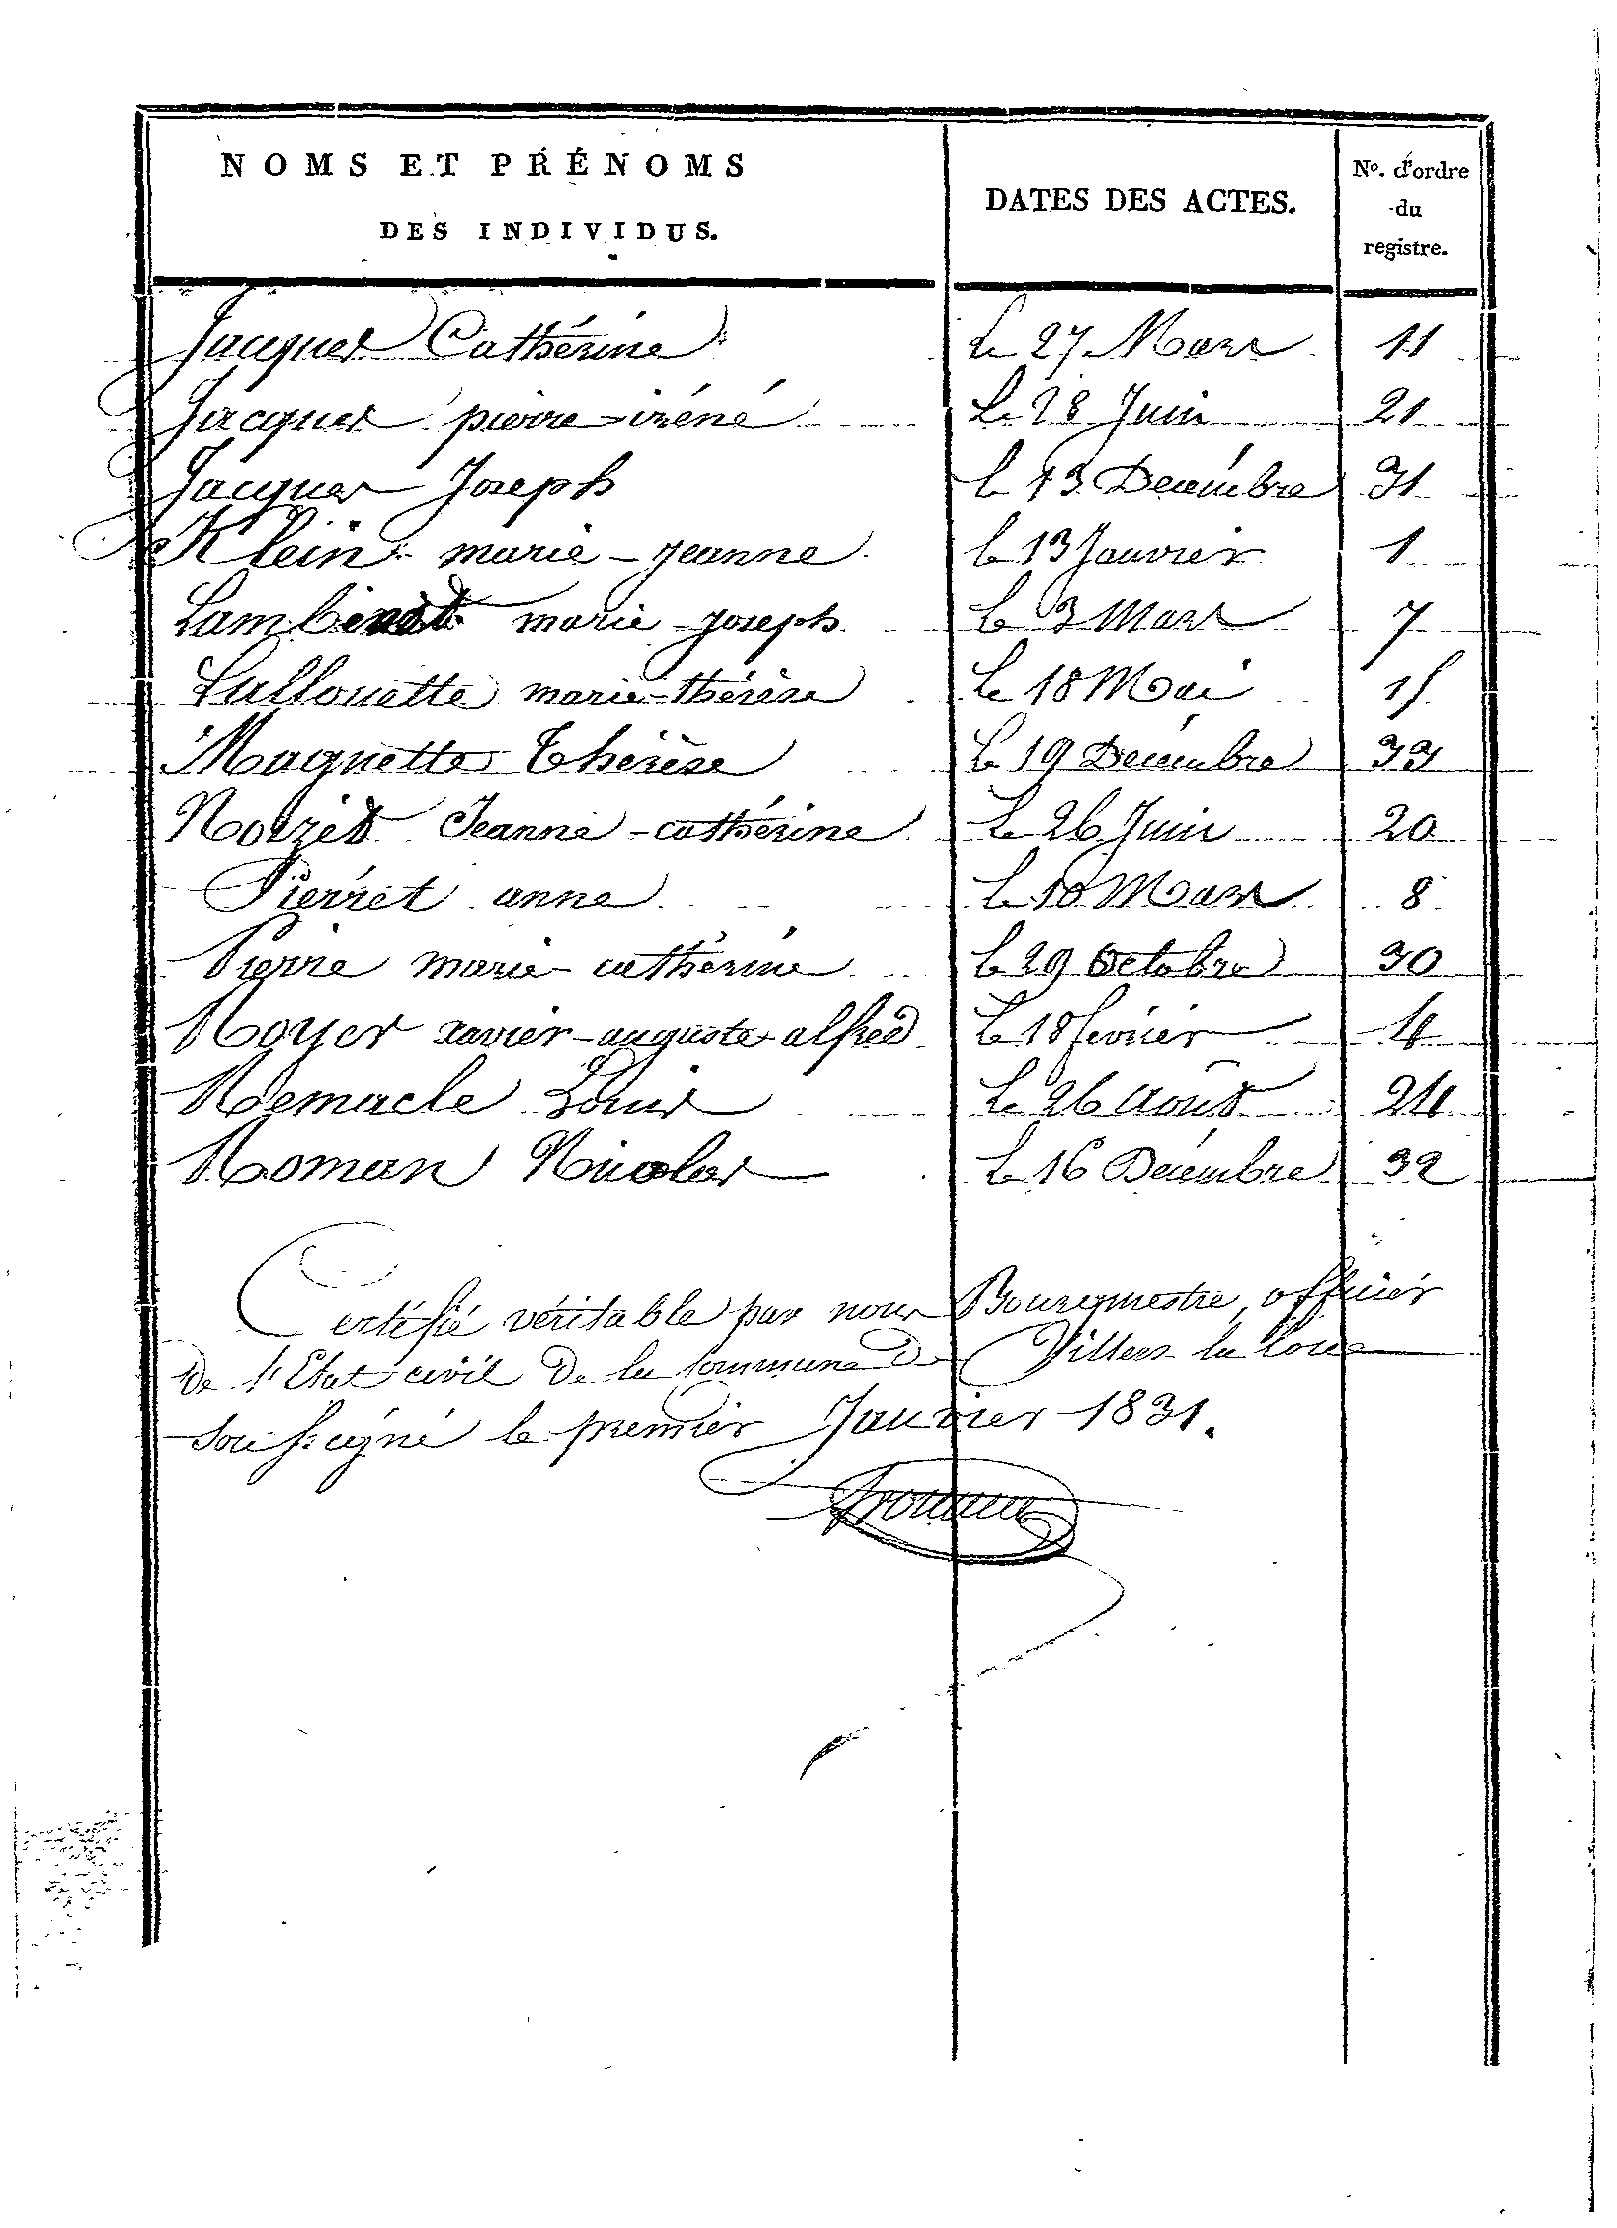 NOMS ET PRÉNOMS
DES INDIVIDUS.
DATES DES ACTES.
No. d'ordre
du
registre.
Jacques Cathérine Le 27 Mars 11
Jacques pierre-iréné Le 28 Juin 21
Jacques Joseph le 13 Decémbre 31
Klein marie-jeanne le 13 Janvier 1
Lambinet marie-joseph le 3 Mars 7
Lallouette marie-thérèse Le 18 Mai 15
Maquette Thérèse le 19 Decémbre 33
Noiret Jeanne-cathérine Le 26 Juin 20
Pierret anne Le 10 Mars 8
Pierre marie-cathérine le 29 Octobre 30
Royer xavier-auguste-alfred Le 18 fevrier 4
Remacle Louis Le 26 Août 24
Roman Nicolas Le 16 Decémbre 32
Certifié véritable par nous Bourgmestre, officier
de l'Etat civil de la commune de Villers la loue
soussigné le premier Janvier 1831.